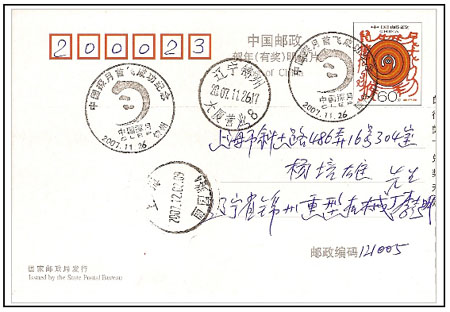 200023
中国邮政
贺年(有奖)明信片
of China
60
中国探月首飞成功纪念
中国探月
2007.11.26
辽宁锦州
2007.11.26
中国探月首飞成功纪念
中国探月
2007.11.26
上海市斜土路486弄16号304室
杨培雄 先生
2007.12.02
辽宁省锦州重型机械
邮政编码121005
国家邮政局发行
Issued by the State Postal Bureau